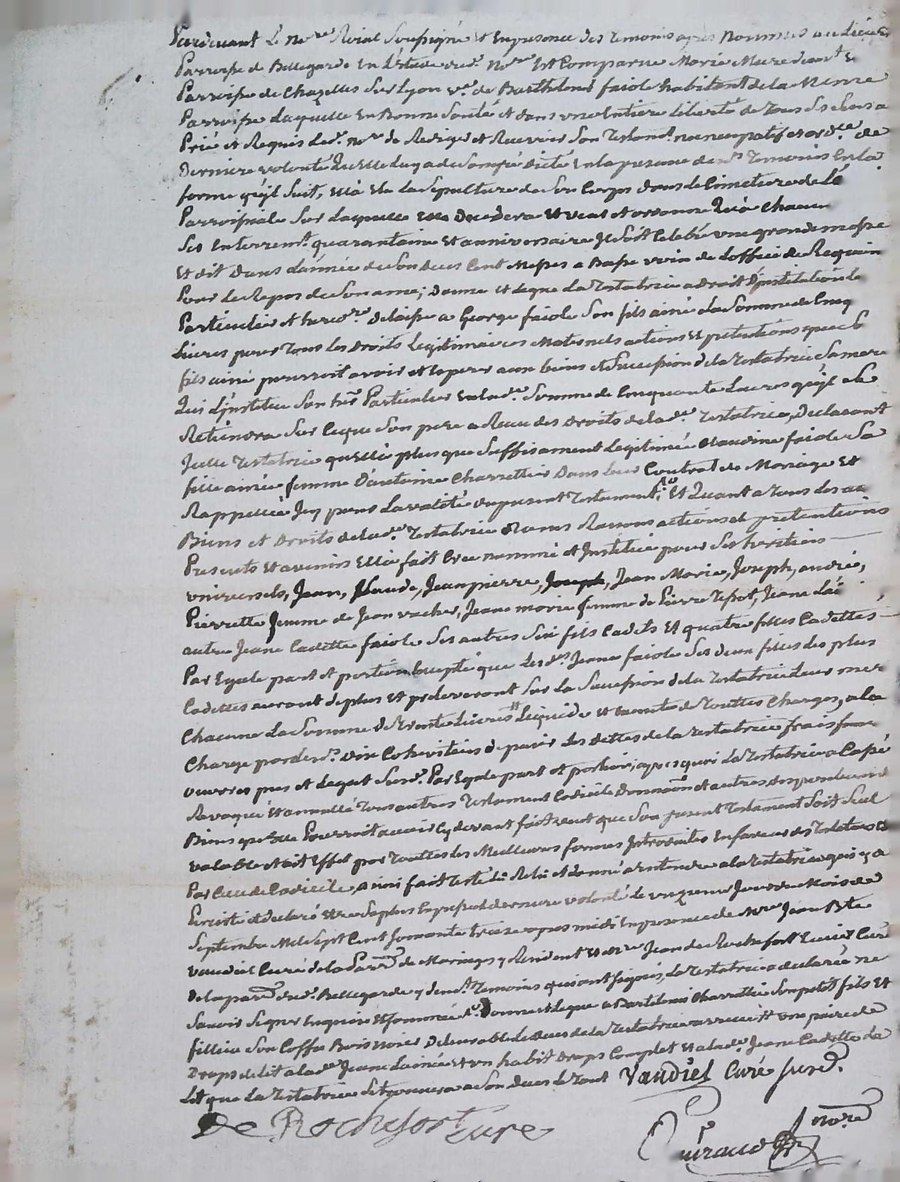 Pardevant Le no.re Roial Soussigné Et En presence Des Temoins après Nommés au Lieu Et
Parroisse de Bellegarde En L'étude dud. no.re Est Comparue Marie Mure
Parroisse de Chazelles Sur Lyon v.e de Barthelemi faiole habitant de la Meme
Parroisse Laquelle En Bonne Santé et dans une Entiere liberté de Tous Ses Sens a
Prié et Requis Led. no.re de Rediger et Recevoir Son Testam.t nuncupatif et ord.re de
Derniere volonté qu'elle a de Son gré Dicté En la presence desd. Temoins En la
forme qu'il Suit, Ella Elu la Sepulture de Son Corps dans le Cimetiere de Lé
Parroissiale Sur Laquelle Elle Decedera Et veut et ordonne qu'à Chacun
Ses Enterrem.t quarantaine Et anniversaire Il Soit Celebré une grande messe
Et dit Dans L'année de Son deces Cent Messes a Basse voix de L'office de Requiem
Pour Le Repos de Son ame; Donne et Legue La Testatrice a Droit D'institution
Particuliere et hered.re Delaisse a George faiole Son fils ainé La Somme de Cinq
Livres pour Tous Les Droits Legitimaires Maternels actions Et pretentions que Le
fils ainé pourroit avoir et Esperer aux biens et Succession de la Testatrice Sa mere
Qui L'institue Son her. Particulier En lad. Somme de Cinquante Livres qu'il
Retiendra Sur Ce que Son pere a Reçu des Droits de lad. Testatrice, Declarant
Icelle Testatrice qu'elle a plus que Suffisament Legitimé Claudine faiole Sa
fille ainée femme D'antoine Charretier Dans Leur Contrat de Mariage Et
Rappellée Icy pour La validité du present Testament; Et Quant a Tous Les au
Biens et Droits de lad. Testatrice Noms Raisons actions et pretentions
Presents Et avenirs Elle a fait Cree nommé et Institué pour Ses heritiers
universels, Jean, Claude, Jean pierre, Joseph, Jean Marie, Joseph, andré,
Pierrette femme de Jean vacher, Jeane marie femme de Pierre Tissot, Jeane L'ai
autre Jeane Cadette faiole Ses autres Six fils Cadets Et quatre filles Cadettes
Par Egale part et portion Excepté que Lesd. Jeane faiole Ses deux filles des plus
Cadettes auront de plus Et preleveront Sur la Succession de la Testatrice Leur mere
Chacune La Somme de Trente Livres Liquide et Exemte de Touttes Charges, a la
Charge par Lesd. dix Coheritiers de paier Les dettes de la Testatrice frais
œuvres pies et Legat Susd. Par Egale part et portion; apres quoi La Testatrice a Cassé
Revoqué Et annullé Tous autres Testament Codicile Donnaõn et autres dispositions
Biens qu'Elle Pourroit avoir Cy devant fait veut que Son present Testament Soit Seul
valable et ait Effet par Touttes Les Meilleures formes Introduites En faveur des Testateurs Et
Par Celle de Codicile, ainsi fait Testé Lu Relu et donné a entendre a la Testatrice qui y a
Persisté et declaré Etre Sa plus Expresse derniere volonté le onzieme Jour du Mois de
Septembre Mil Sept Cent Soixante Treize apres midi En presence de M.re Jean B.te
vaudiel Curé de la Parr.e de Maringes y Resident Et M.re Jean de Rochefort Curé
de la parr.e dud. Bellegarde y dem.t Temoins qui ont Signés, La Testatrice a declaré ne
Savoir Signer Enquise Et Sommée Donne et legue a Bartelemi Charretier Son petit fils Et
fillieu Son Coffre Bois Noyer Et une paire de
Draps de Lit a lad. Jeane L'ainée Et un habit Draps Complet Et a lad. Jeane Cadette
Lit que La Testatrice Se trouvera a Son deces Le Tout Vaudiel Curé susd.
De Rochefort Curé
Guiraud no.re